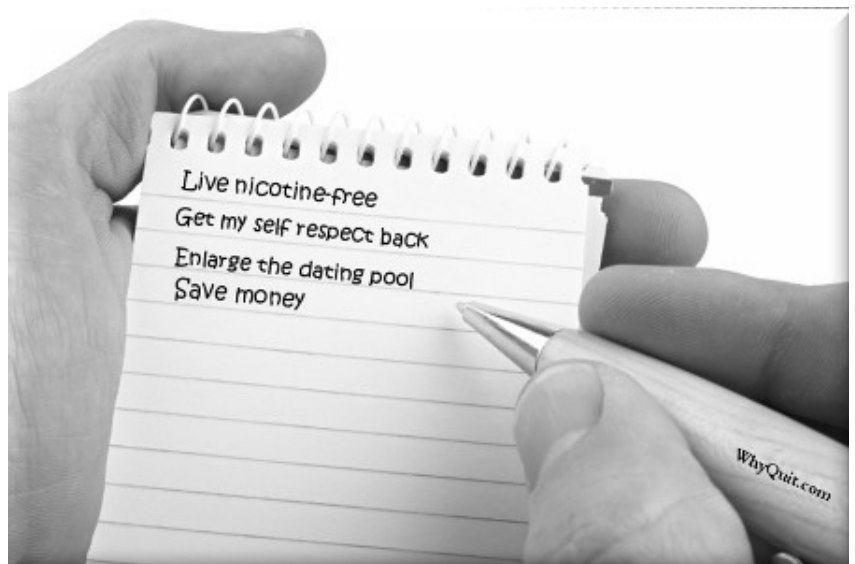 Live nicotine-free
Get my self respect back
Enlarge the dating pool
Save money
WhyQuit.com